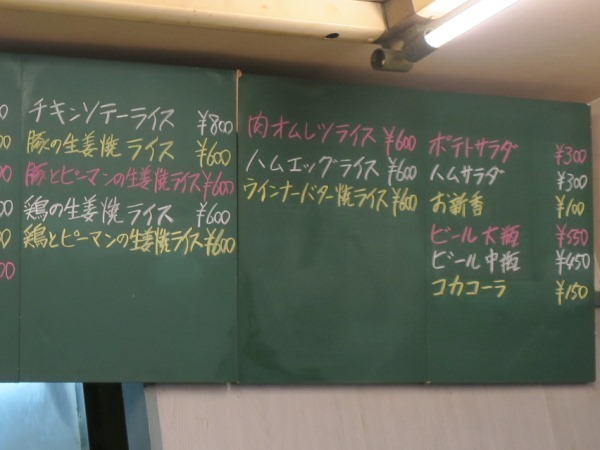 チキンソテーライス ¥800
豚の生姜焼ライス ¥600
豚とピーマンの生姜焼ライス ¥600
鶏の生姜焼ライス ¥600
鶏とピーマンの生姜焼ライス ¥600
肉オムレツライス ¥600
ハムエッグライス ¥600
ウインナードター焼ライス ¥600
ポテトサラダ ¥300
ハムサラダ ¥300
お新香 ¥100
ビール大瓶 ¥550
ビール中瓶 ¥450
コカコーラ ¥150